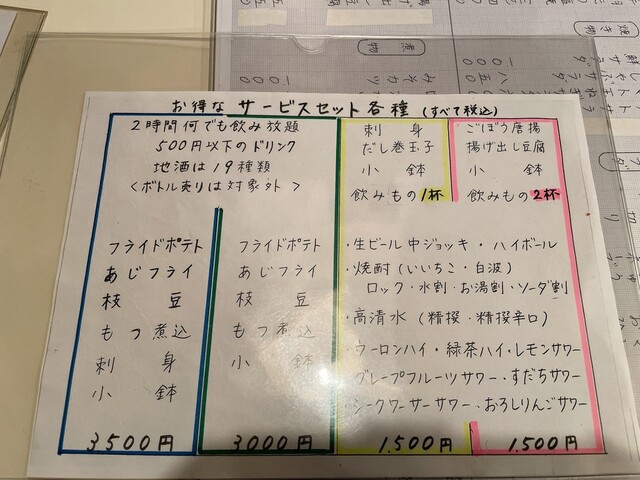 お得な サービスセット各種 (すべて税込)
2時間何でも飲み放題
500円以下のドリンク
地酒は19種類
<ボトル売りは対象外>
フライドポテト
あじフライ
枝豆
もつ煮込
刺身
小鉢
3500円
フライドポテト
あじフライ
枝豆
もつ煮込
小鉢
3000円
刺身
だし巻玉子
小鉢
飲みもの1杯
ごぼう唐揚
揚げ出し豆腐
小鉢
飲みもの2杯
・生ビール中ジョッキ・ハイボール
・焼酎(いいちこ・白波)
ロック・水割・お湯割・ソーダ割
・高清水(精撰・精撰辛口)
・ウーロンハイ・緑茶ハイ・レモンサワー
・グレープフルーツサワー・すだちサワー
・シークワーサーサワー・おろしりんごサワー
1,500円
1,500円
煮物
焼き物